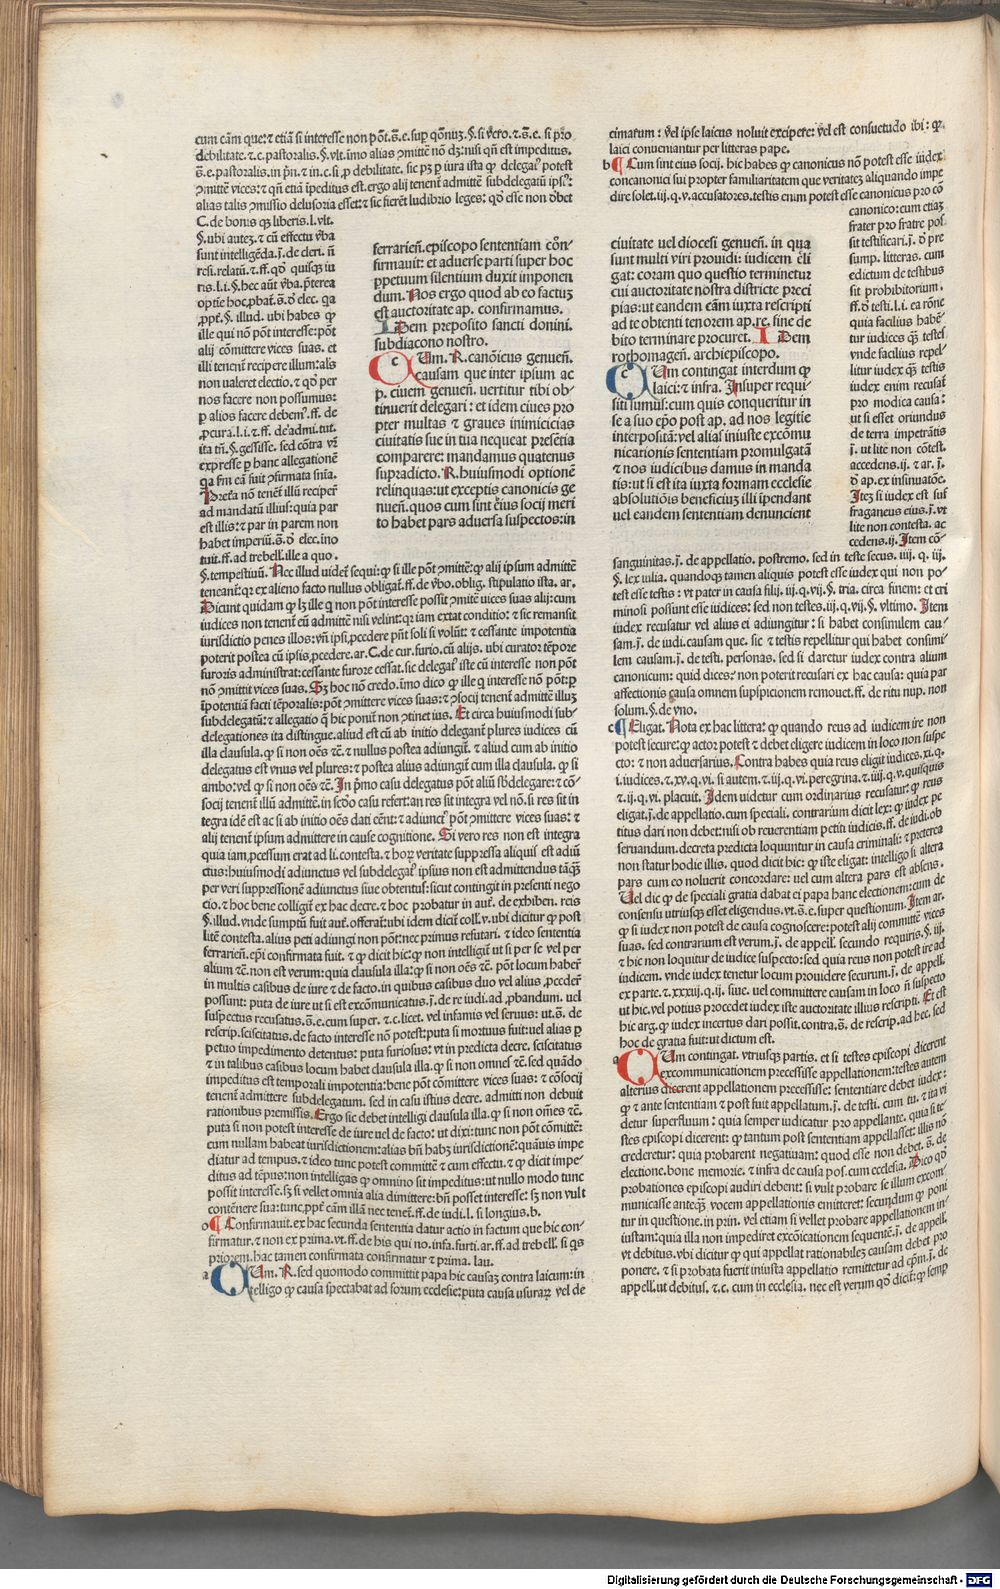 cum eam que: ⁊ etiā si interesse non pōt. s̄. e. sup qōniuz. §. si vero. ⁊ s̄. e. si pro
debilitate. ⁊ c. pastoralis. §. vlt. īmo alias ꝯmitte nō dꝫ: nisi qn̄ est impeditus.
s̄. e. pastoralis. in pn̄. ⁊ in c. si ꝓ debilitate. sic pꝫ ꝑ iura ista ꝙ delegaꝰ potest
ꝯmittē vices: ⁊ qn̄ etiā īpeditus est. ergo alij tenent admittē subdelegatū ipsiꝰ:
alias talis ꝯmissio delusoria esset: ⁊ sic fierēt ludibrio leges: qō esse non ōbet
C. de bonis qꝫ liberis. l. vlt.
§. ubi autez. ⁊ cū effectu v̄ba
sunt intelligēda. j. de cleri. n̄
resi. relatū. ⁊ ff. qō quisqꝫ iu
ris. l. i. §. hec aūt v̄ba. p̄terea
optie hoc ꝓbat. s̄. ō elec. qa
ꝓpt̄. §. illud. ubi habes ꝙ
ille qui nō pōt interesse: pōt
alij cōmittere vices suas. et
illi tenent̄ recipere illum: als
non ualeret electio. ⁊ qō per
nos facere non possumus:
ꝑ alios facere debemꝰ. ff. de
ꝓcura. l. i. ⁊ ff. de admi. tut.
ita tn̄. §. gessisse. sed cōtra vr̄
expresse ꝑ hanc allegationē
qa fm eā fuit ꝯfirmata snīa.
Preta nō tenēt illū reciper̄
ad mandatū illius: quia par
est illis: ⁊ par in parem non
habet imperiū. s̄. ō elec. ino
tuit. ff. ad trebell. ille a quo.
§. tempestiuū. Nec illud uidet̄ sequi: ꝙ si ille pōt ꝯmitte: ꝙ alij ipsum admittē
teneant̄: qꝛ ex alieno facto nullus obligat̄. ff. de v̄bo. oblig. stipulatio ista. ar.
Dicunt quidam ꝙ lꝫ ille q̄ non pōt interesse possit ꝯmitē vices suas alij: cum
iudices non tenent̄ eū admittē nisi velint: qꝛ iam extat conditio: ⁊ sic remansit
iurisdictio penes illos: vn̄ ipsi ꝓcedere pn̄t soli si volūt: ⁊ cessante impotentia
poterit postea cū ipsis ꝓcedere. ar. C. de cur. furio. cū alijs. ubi curator tēpore
furoris administrat: cessante furore cessat. sic delegatꝰ iste cū interesse non pōt
nō ꝯmittit vices suas. Sꝫ hoc nō credo. īmo dico ꝙ ille q̄ interesse nō pōt: ꝑ
īpotentiā facti tēporalis: pōt ꝯmittere vices suas: ⁊ ꝯsocij tenent̄ admittē illuꝫ
subdelegatū: ⁊ allegatio q̄ hic ponit̄ non ꝯtinet ius. Et circa huiusmodi sub⸗
delegationes ita distingue. aliud est cū ab initio delegant̄ plures iudices cū
illa clausula. ꝙ si non oēs ⁊c̄. ⁊ nullus postea adiungit̄. ⁊ aliud cum ab initio
delegatus est vnus vel plures: ⁊ postea alius adiungit̄ cum illa clausula. ꝙ si
ambo: vel ꝙ si non oēs ⁊c̄. In pͥmo casu delegatus pōt aliū sb̄delegare: ⁊ cō⸗
socij tenent̄ illū admittē. in scdo casu refert: an res sit integra vel nō. si res sit in
tegra idē est ac si ab initio oēs dati cēnt: ⁊ adiunctꝰ pōt ꝯmittere vices suas: ⁊
alij tenent̄ ipsum admittere in cause cognitione. Si vero res non est integra
quia iam ꝓcessum erat ad li. contesta. ⁊ horꝫ veritate suppressa aliquis est adiū
ctus: huiusmodi adiunctus vel subdelegatꝰ ipsius non est admittendus tāqꝫ
per veri suppressionē adiunctus siue obtentus: sicut contingit in presenti nego
cio. ⁊ hoc bene colligit̄ ex hac decre. ⁊ hoc probatur in aut̄. de exhiben. reis
§. illud. vnde sumptū fuit aut̄. offerat̄: ubi idem dicit̄ coll. v. ubi dicitur ꝙ post
litē contesta. alius peti adiungi non pōt: nec primus refutari. ⁊ ideo sententia
ferrarien̄. ep̄i confirmata fuit. ⁊ ꝙ dicit hic: ꝙ non intelligit̄ ut si per se vel per
alium ⁊c̄. non est verum: quia clausula illa: ꝙ si non oēs ⁊c̄. pōt locum haber̄
in multis casibus de iure ⁊ de facto. in quibus casibus duo vel alius ꝓceder̄
possunt: puta de iure ut si est excōmunicatus. j. de re iudi. ad ꝓbandum. uel
suspectus recusatus. s̄. e. cum super. ⁊ c. licet. vel infamis vel seruus: ut. s̄. de
rescrip. sciscitatus. de facto interesse nō potest: puta si mortuus fuit: uel alias ꝑ
petuo impedimento detentus: puta furiosus: vt in predicta decre. sciscitatus
⁊ in talibus casibus locum habet clausula illa. ꝙ si non omnes ⁊c̄. sed quādo
impeditus est temporali impotentia: bene pōt cōmittere vices suas: ⁊ cōsocij
tenent̄ admittere subdelegatum. sed in casu istius decre. admitti non debuit
rationibus premissis. Ergo sic debet intelligi clausula illa. ꝙ si non om̄es ⁊c̄.
puta si non potest interesse de iure uel de facto: ut dixi: tunc non pōt cōmittē:
cum nullam habeat iurisdictionem: alias bn̄ habꝫ iurisdictionē: quāuis impe
diatur ad tempus. ⁊ ideo tunc potest committē ⁊ cum effectu. ⁊ ꝙ dicit impe⸗
ditus ad tēpus: non intelligas ꝙ omnino sit impeditus: ut nullo modo tunc
possit interesse. sꝫ si vellet omnia alia dimittere: bn̄ posset interesse: sꝫ non vult
contēnere sua: tunc ꝓpt̄ cām illā nec tenet̄. ff. de iudi. l. si longius. b.
o ¶ Confirmauit. ex hac secunda sententia datur actio in factum que hic con⸗
firmatur. ⁊ non ex prima. vt. ff. de his qui no. infa. furti. ar. ff. ad trebell. si qs
priorem. hac tamen confirmata confirmatur ⁊ prima. lau.
a QUm. R. sed quomodo committit papa hic causaꝫ contra laicum: in
telligo ꝙ causa spectabat ad forum ecclesie: puta causa usurarꝫ vel de
ferrarien̄. episcopo sententiam cōn⸗
firmauit: et aduerse parti super hoc
ppetuum silentium duxit imponen
dum. Nos ergo quod ab eo factuꝫ
est auctoritate ap. confirmamus.
IDem preposito sancti donini.
subdiacono nostro.
c QUm. R. canōicus genuen̄.
causam que inter ipsum ac
p. ciuem genuen̄. uertitur tibi ob⸗
tinuerit delegari: et idem ciues pro
pter multas ⁊ graues inimicicias
ciuitatis sue in tua nequeat presētia
comparere: mandamus quatenus
supradicto. R. huiusmodi optionē
relinquas: ut exceptis canonicis ge
nuen̄. quos cum sint eius socij meri
to habet pars aduersa suspectos: in
ciuitate uel diocesi genuen̄. in qua
sunt multi viri prouidi: iudicem eli
gat: coram quo questio terminetur
cui auctoritate nostra districte preci
pias: ut eandem cām iuxta rescripti
ad te obtenti tenorem ap. re. sine de
bito terminare procuret. IDem
rothomagen̄. archiepiscopo.
c QUm contingat interdum ꝙ
laici: ⁊ infra. Insuper requi⸗
siti sumus: cum quis conqueritur in
se a suo ep̄o post ap. ad nos legitie
interpositā: vel alias iniuste excōmu
nicationis sententiam promulgatā
⁊ nos iudicibus damus in manda
tis: ut si est ita iuxta formam ecclesie
absolutiōis beneficiuꝫ illi īpendant
uel eandem sententiam denuncient
cimarum: vel ipse laicus noluit excipere: vel est consuetudo ibi: ꝙ
laici conueniantur per litteras pape.
b ¶ Cum sint eius socij. hic habes ꝙ canonicus nō potest esse iudex
concanonici sui propter familiaritatem que veritateꝫ aliquando impe
dire solet. iij. q. v. accusatores. testis enim potest esse canonicus pro cō
canonico: cum etiaꝫ
frater pro fratre pos
sit testificari. j. ō pre
sump. litteras. cum
edictum de testibus
sit prohibitorium.
ff. ō testi. l. i. ea rōne
quia facilius habē⸗
tur iudices qꝫ testes
vnde facilius repel⸗
litur iudex qꝫ testis
iudex enim recusat̄
pro modica causa:
ut si esset oriundus
de terra impetrātis
j. ut lite non cōtest.
accedens. ij. ⁊ ar. j.
ō ap. ex insinuatōe.
Iteꝫ si iudex est suf
fraganeus eius. j. vt
lite non contesta. ac
cedens. ij. Item cō⸗
sanguinitas. j. de appellatio. postremo. sed in teste secus. iiij. q. iij.
§. lex iulia. quandoqꝫ tamen aliquis potest esse iudex qui non po⸗
test esse testis: vt pater in causa filij. iij. q. vij. §. tria. circa finem: et cri
minosi possunt esse iudices: sed non testes. iij. q. vij. §. vltimo. Item
iudex recusatur vel alius ei adiungitur: si habet consimilem cau⸗
sam. j. de iudi. causam que. sic ⁊ testis repellitur qui habet consimi
lem causam. j. de testi. personas. sed si daretur iudex contra alium
canonicum: quid dices: non poterit recusari ex hac causa: quia par
affectionis causa omnem suspspicionem remouet. ff. de ritu nup. non
solum. §. de vno.
c ¶ Eligat. Nota ex hac littera: ꝙ quando reus ad iudicem ire non
potest secure: ꝙ actor potest ⁊ debet eligere iudicem in loco non suspe
cto: ⁊ non aduersarius. Contra habes quia reus eligit iudices. xi. q.
i. iudices. ⁊. xv. q. vi. si autem. ⁊. iij. q. vi. peregrina. ⁊. iiij. q. v. quisquis
⁊. ij. q. vi. placuit. Idem uidetur cum ordinarius recusatur: ꝙ reus
eligat. j. de appellatio. cum speciali. contrarium dicit lex: ꝙ iudex pe
titus dari non debet: nisi ob reuerentiam petiti iudicis. ff. de iudi. ob
seruandum. decreta predicta loquuntur in causa criminali: ⁊ preterea
non statur hodie illis. quod dicit hic: ꝙ iste eligat: intelligo si altera
pars cum eo noluerit concordare: uel cum altera pars est absens.
Uel dic ꝙ de speciali gratia dabat ei papa hanc electionem: cum de
consensu utriusqꝫ esset eligendus. vt. s̄. e. super questionum. Item ar.
ꝙ si iudex non potest de causa cognoscere: potest alij committē vices
suas. sed contrarium est verum. j. de appell. secundo requiris. §. iij.
⁊ hic non loquitur de iudice suspecto: sed quia reus non potest ire ad
iudicem. vnde iudex tenetur locum prouidere securum. j. de appell.
ex parte. ⁊. xxxiij. q. ij. siue. uel committere causam in loco n̄ suspecto
ut hic. vel potius procedet iudex iste auctoritate illius rescripti. Et est
hic arg. ꝙ iudex incertus dari possit. contra. s̄. de rescrip. ad hec. sed
hoc de gratia fuit: ut dictum est.
a QUm contingat. vtriusqꝫ partis. et si testes episcopi dicerent
excommunicationem precessisse appellationem: testes autem
alterius dicerent appellationem precessisse: sententiare debet iudex:
ꝙ ⁊ ante sententiam ⁊ post fuit appellatum. j. de testi. cum tu. ⁊ ita vi
detur superfluum: quia semper iudicatur pro appellante. quia si te⸗
stes episcopi dicerent: ꝙ tantum post sententiam appellasset: illis nō
crederetur: quia probarent negatiuam: quod esse non debet. s̄. de
electione. bone memorie. ⁊ infra de causa pos. cum ecclesia. Dico qō
probationes episcopi audiri debent: si vult probare se illum excom⸗
municasse anteqꝫ vocem appellationis emitteret: secundum ꝙ poni
tur in questione. in prin. vel etiam si vellet probare appellationem in⸗
iustam: quia illa non impediret excōicationem sequentē. j. de appell.
vt debitus. vbi dicitur ꝙ qui appellat rationabileꝫ causam debet pro
ponere. ⁊ si probata fuerit iniusta appellatio remittetur ad pͥm. j. de
appell. ut debitus. ⁊. c. cum in ecclesia. nec est verum qō dicit: ꝙ semp
Digitalisierung gefördert durch die Deutsche Forschungsgemeinschaft - DFG